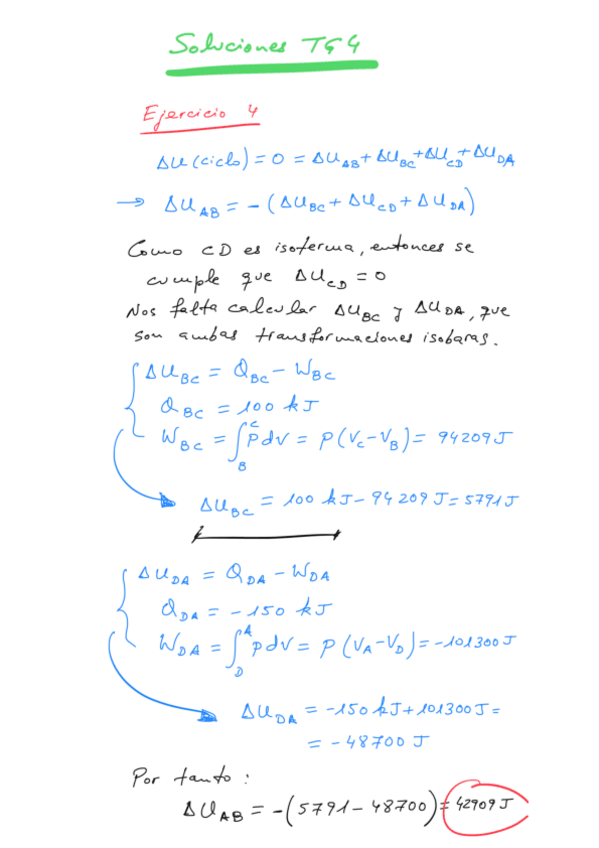 Soluciones TG4
Ejercicio 4
ΔU (ciclo) = 0 = ΔU_AB + ΔU_BC + ΔU_CD + ΔU_DA
→ ΔU_AB = - (ΔU_BC + ΔU_CD + ΔU_DA)
Como CD es isoterma, entonces se
cumple que ΔU_CD = 0
Nos falta calcular ΔU_BC y ΔU_DA, que
son ambas transformaciones isobaras.
ΔU_BC = Q_BC - W_BC
Q_BC = 100 kJ
W_BC = ∫_B^C P dV = P (V_C - V_B) = 94209 J
ΔU_BC = 100 kJ - 94209 J = 5791 J
ΔU_DA = Q_DA - W_DA
Q_DA = -150 kJ
W_DA = ∫_D^A p dV = P (V_A - V_D) = -101300 J
ΔU_DA = -150 kJ + 101300 J =
= -48700 J
Por tanto :
ΔU_AB = - (5791 - 48700) = 42909 J